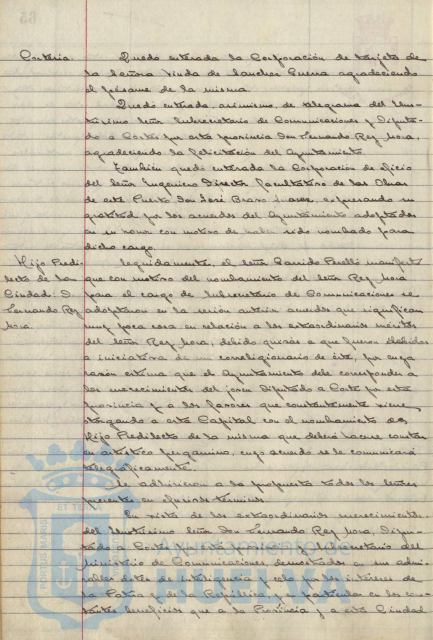 Cortesía. Quedó enterada la Corporación de tarjeta de
la Señora Viuda de Sanchez Guerra agradeciendo
el pésame de la misma.
Quedó enterada, asimismo, de telegrama del Ilus-
trísimo Señor Subsecretario de Comunicaciones y Diputa-
do a Cortes por esta provincia Don Fernando Rey Mora,
agradeciendo la felicitación del Ayuntamiento.
También quedó enterada la Corporación de oficio
del Señor Ingeniero Director facultativo de las Obras
de este Puerto Don José Bravo Suarez, expresando su
gratitud por los acuerdos del Ayuntamiento adoptados
en su honor con motivo de haber sido nombrado para
dicho cargo.
Hijo Predi- Seguidamente, el señor Garrido Perelló manifestó
lecto de la que con motivo del nombramiento del señor Rey Mora
Ciudad: D. para el cargo de Subsecretario de Comunicaciones se
Fernando Rey adoptaron en la sesión anterior acuerdos que significan
Mora. muy poca cosa en relación a los extraordinarios méritos
del señor Rey Mora, debido quizás a que fueron debidos
a iniciativa de un correligionario de éste, por cuya
razón estima que el Ayuntamiento debe corresponder a
los merecimientos del joven Diputado a Cortes por esta
provincia y a los favores que constantemente viene
otorgando a esta Capital con el nombramiento de
Hijo Predilecto de la misma que deberá hacerse constar
en artístico pergamino, cuyo acuerdo se le comunicará
telegráficamente.
Se adhirieron a la propuesta todos los señores
presentes en efusivos términos.
En vista de los extraordinarios merecimientos
del Ilustrísimo Señor Don Fernando Rey Mora, Dipu-
tado a Cortes por esta provincia y Subsecretario del
Ministerio de Comunicaciones, demostrados en sus admi-
rables dotes de inteligencia y celo por los intereses de
la Patria y de la República, y en particular en los cons-
tantes beneficios que a la Provincia y a esta Ciudad
Ayuntamiento de
HUELVA